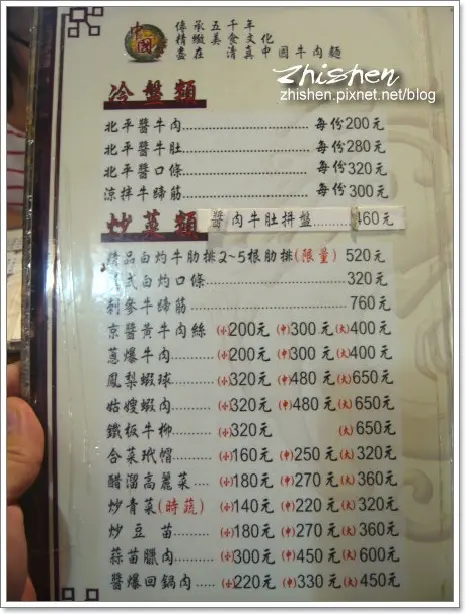 傳承五千年
精緻美食文化
盡在 清真中國牛肉麵
中國
Zhishen
zhishen.pixnet.net/blog
冷盤類
北平醬牛肉..................每份200元
北平醬牛肚..................每份280元
北平醬口條..................每份320元
涼拌牛蹄筋..................每份300元
炒菜類
醬肉牛肚拼盤........460元
精品白灼牛肋排2~5根肋排(限量) 520元
式白灼口條..................320元
刺參牛蹄筋..................760元
京醬黃牛肉絲 (小)200元 (中)300元 (大)400元
蔥爆牛肉.......... (小)200元 (中)300元 (大)400元
鳳梨蝦球.......... (小)320元 (中)480元 (大)650元
姑嫂蝦肉.......... (小)320元 (中)480元 (大)650元
鐵板牛柳.......... (小)320元 (大)650元
合菜玳帽.......... (小)160元 (中)250元 (大)320元
醋溜高麗菜.... (小)180元 (中)270元 (大)360元
炒青菜(時蔬) (小)140元 (中)220元 (大)320元
炒豆苗.......... (小)180元 (中)270元 (大)360元
蒜苗臘肉.......... (小)300元 (中)450元 (大)600元
醬爆回鍋肉..... (小)220元 (中)330元 (大)450元